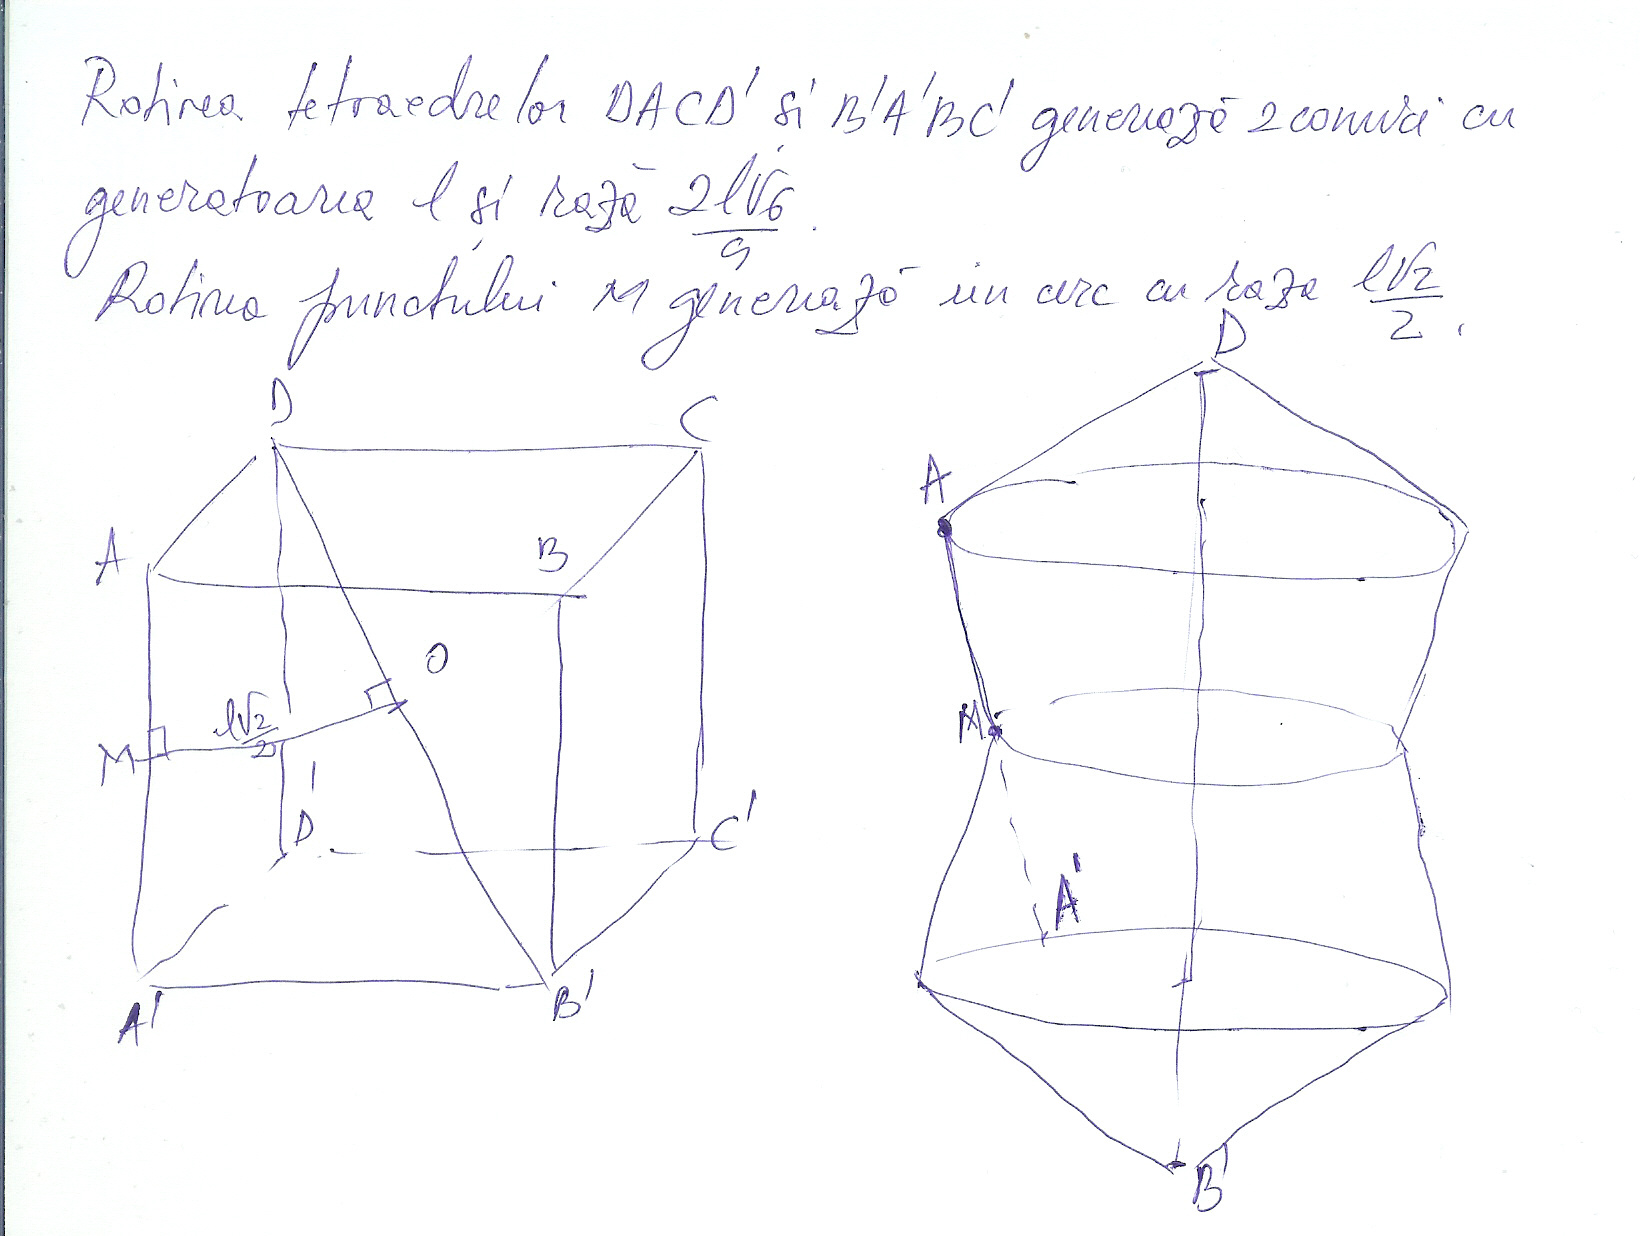 Rotirea tetraedrelor DACD' și B'A'BC' generează 2 conuri cu
generatoarea l și rază 2l√6/9.
Rotirea punctului M generează un cerc cu raza l√2/2.
D
D
C
A
A
B
O
l√2/2
M
M
D'
C'
A'
A'
B'
B'